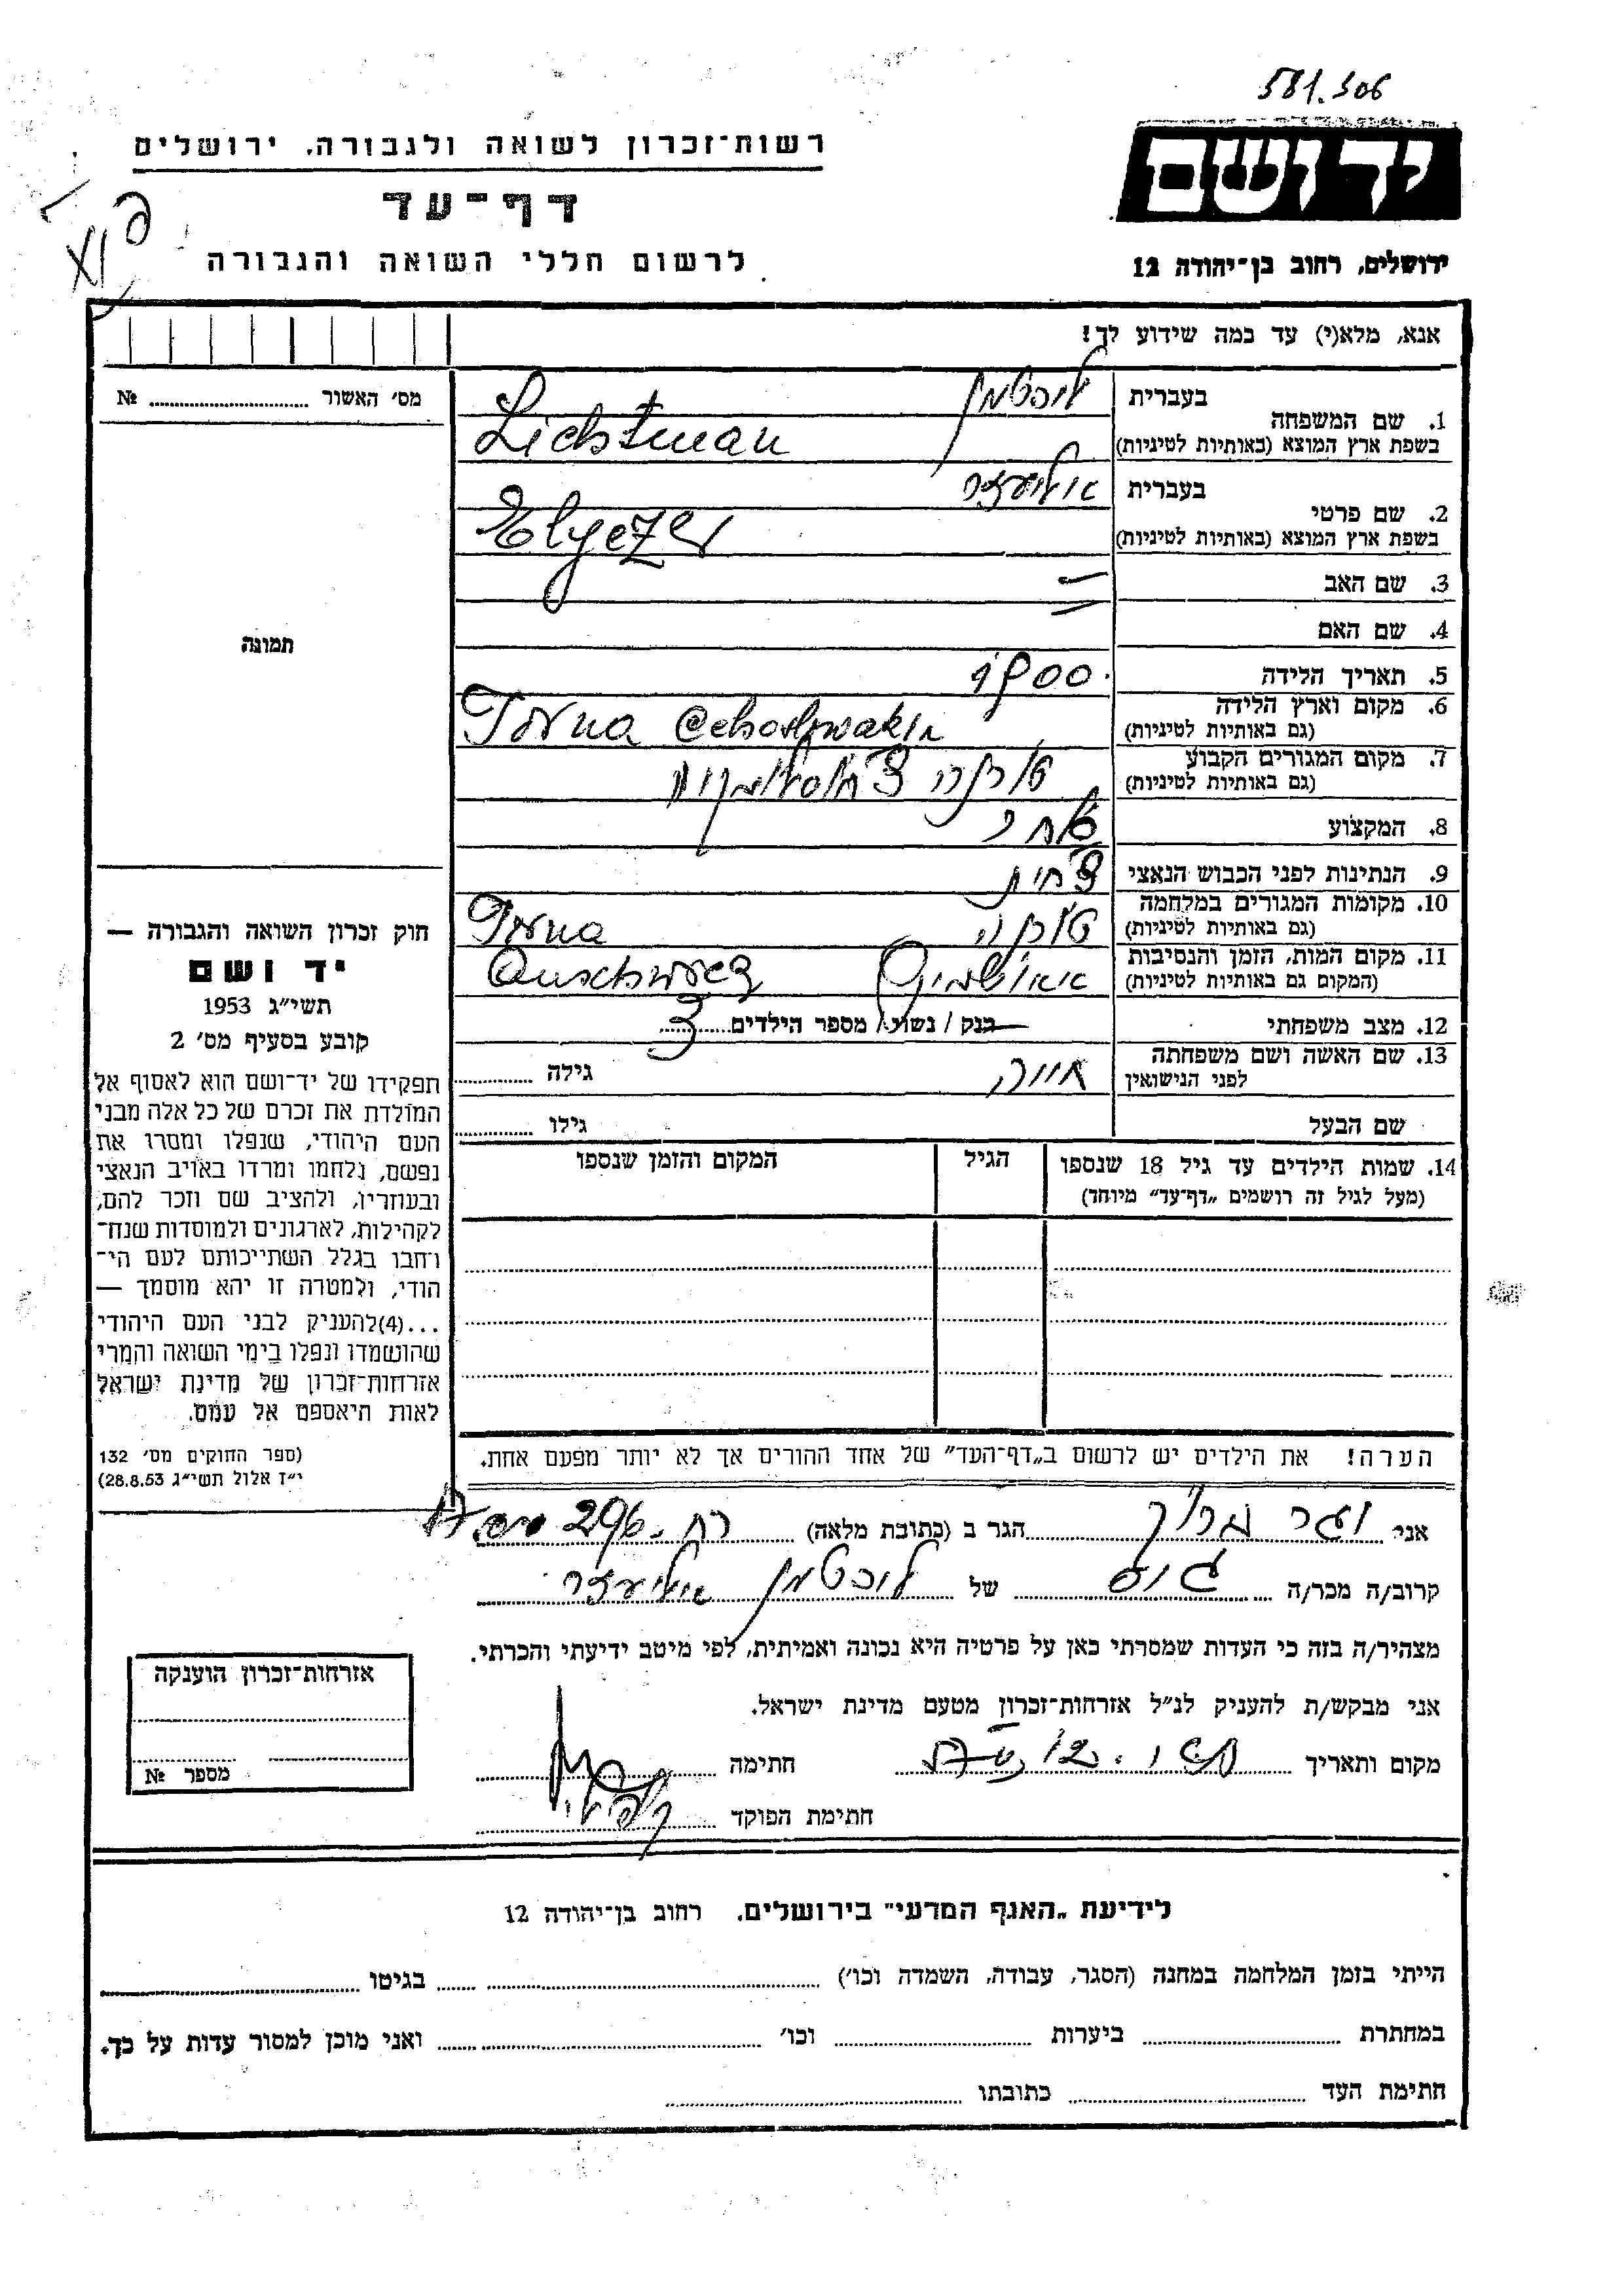 581.306
יד ושם
ירושלים, רחוב בן־יהודה 12
רשות־זכרון לשואה ולגבורה. ירושלים
דף־עד
לרשום חללי השואה והגבורה
אנא, מלא(י) עד כמה שידוע לך!
מס׳ האשור № ....................
תמונה
1. שם המשפחה
בעברית
ליכטמן
בשפת ארץ המוצא (באותיות לטיניות)
Lichtman
2. שם פרטי
בעברית
אליעזר
בשפת ארץ המוצא (באותיות לטיניות)
Elyezer
3. שם האב
4. שם האם
5. תאריך הלידה 1900
6. מקום וארץ הלידה
(גם באותיות לטיניות)
Torna
7. מקום המגורים הקבוע
(גם באותיות לטיניות)
טורנה
8. המקצוע סוחר
9. הנתינות לפני הכבוש הנאצי צ'כית
10. מקומות המגורים במלחמה
(גם באותיות לטיניות)
טורנה Torna
11. מקום המות, הזמן והנסיבות
(המקום גם באותיות לטיניות)
12. מצב משפחתי רווק / נשוי / מספר הילדים 3
13. שם האשה ושם משפחתה
לפני הנישואין
חווה גילה
שם הבעל גילו
14. שמות הילדים עד גיל 18 שנספו
(מעל לגיל זה רושמים „דף־עד״ מיוחד)
הגיל
המקום והזמן שנספו
הערה! את הילדים יש לרשום ב„דף־העד״ של אחד ההורים אך לא יותר מפעם אחת.
חוק זכרון השואה והגבורה —
יד ושם
תשי״ג 1953
קובע בסעיף מס׳ 2
תפקידו של יד־ושם הוא לאסוף אל
המולדת את זכרם של כל אלה מבני
העם היהודי, שנפלו ומסרו את
נפשם, נלחמו ומרדו באויב הנאצי
ובעוזריו, ולהציב שם וזכר להם,
לקהילות, לארגונים ולמוסדות שנח־
רחבו בגלל השתייכותם לעם הי־
הודי, ולמטרה זו יהא מוסמך —
...(4)להעניק לבני העם היהודי
שהושמדו ונפלו בימי השואה והמרי
אזרחות־זכרון של מדינת ישראל
לאות היאספם אל עמם.
(ספר החוקים מס׳ 132
י״ז אלול תשי״ג 28.8.53)
אני הגר ב (כתובת מלאה) רח. 296
קרוב/ה מכר/ה גיס של ליכטמן אליעזר
מצהיר/ה בזה כי העדות שמסרתי כאן על פרטיה היא נכונה ואמיתית, לפי מיטב ידיעתי והכרתי.
אני מבקש/ת להעניק לנ״ל אזרחות־זכרון מטעם מדינת ישראל.
מקום ותאריך חתימה
חתימת הפוקד
אזרחות־זכרון הוענקה
מספר №
לידיעת „האגף המדעי״ בירושלים. רחוב בן־יהודה 12
הייתי בזמן המלחמה במחנה (הסגר, עבודה, השמדה וכו׳) בגיטו
במחתרת ביערות וכו׳ ואני מוכן למסור עדות על כך.
חתימת העד כתובתו